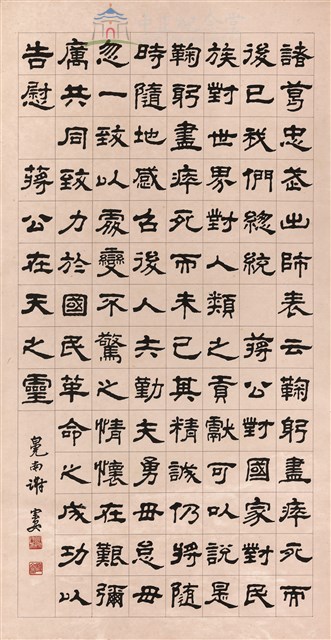 諸葛忠武出師表云鞠躬盡瘁死而
後已我們總統 蔣公對國家對民
族對世界對人類之貢獻可以說是
鞠躬盡瘁死而未已其精誠仍將隨
時隨地感召後人去勤夫勇毋怠毋
忽一致以處變不驚之情懷在艱彌
厲共同致力於國民革命之成功以
告慰 蔣公在天之靈
南謝宗安